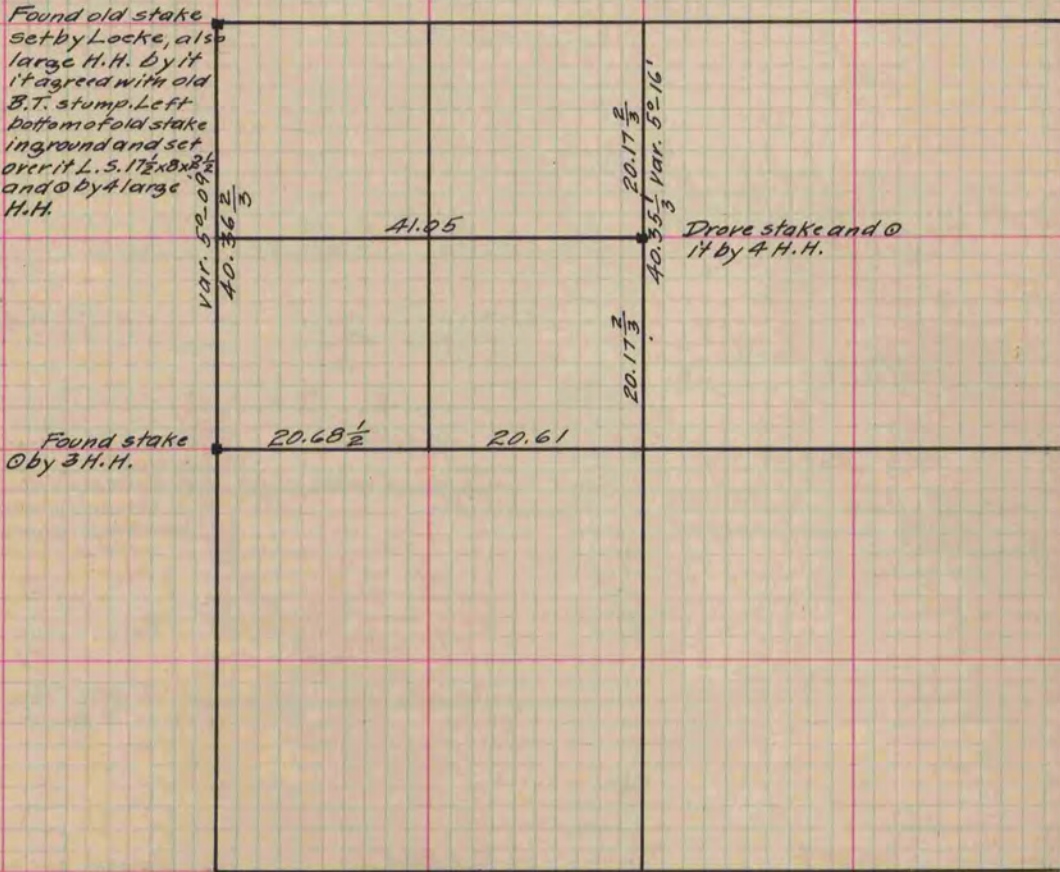 Found old stake
set by Locke, also
large H.H. by it
it agreed with old
B.T. stump. Left
bottom of old stake
in ground and set
over it L.S. 17½x8x2½
and ⊙ by 4 large
H.H.
var. 5°-09'
40.36 2/3
41.05
20.17 2/3
40.35 1/3 var. 5°-16'
Drove stake and ⊙
it by 4 H.H.
20.17 2/3
Found stake
⊙ by 3 H.H.
20.68 ½
20.61